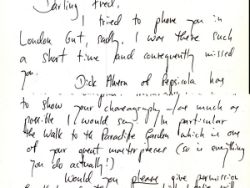 Darling Fred,
I tried to phone you in
London but, sadly, I was there such
a short time and consequently missed
you.
Dick Ahern of Pepsicola has
to show your choreography – as much as
possible I would say! In particular
the Walk to the Paradise Garden which is one
of your great masterpieces (so is everything
you do actually!)
Would you please give permission